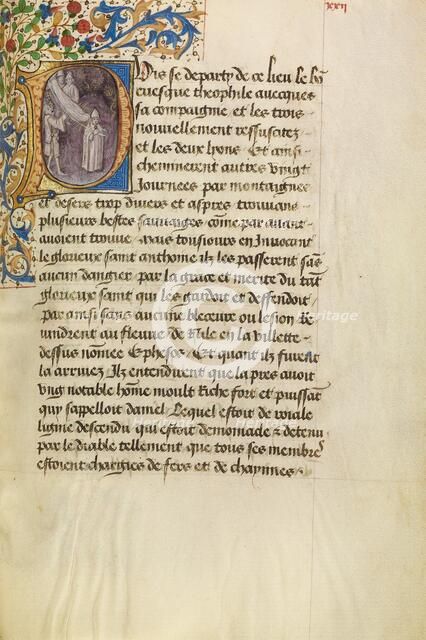 xxii
Puis se departy de ce lieu le bō
euesque theophile auecques
sa compaignie et les trois
nouuellement ressuscitez
et les deux lyons. Et ainsi
cheminerent autres vingt
Journees par montaignes
et desers trop diuers et aspres trouuans
plusieurs bestes sauuaiges cōme par auant
auoient trouue. Mais tousiours en Inuocant
le glorieux saint anthoine ilz les passerent sās
aucun dangier par la grace et merite du tāt
glorieux saint qui les gardoit et deffendoit.
Par ainsi sans aucune bleceure ou lesion Re
uindrent au fleuue de Nile en la villette
dessus nomee Ephesos. Et quant ilz furent
la arriuez Ilz entendirent que la pres auoit
vng notable hōme moult Riche fort et puissāt
quy sappelloit daniel. Lequel estoit de roiale
ligne descendu qui estoit demoniacle & detenu
par le diable tellement que tous ses membres
estoient chargies de fers et de chaynnes.
heritage